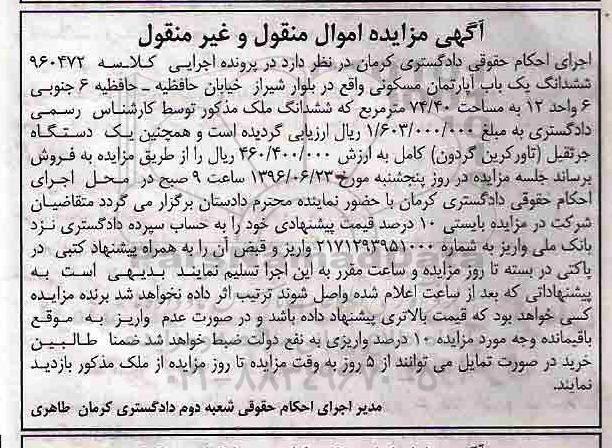 آگهی مزایده اموال منقول و غیر منقول
اجرای احکام حقوقی دادگستری کرمان در نظر دارد در پرونده اجرایی کلاسه ۹۶۰۴۷۲
ششدانگ یک باب آپارتمان مسکونی واقع در بلوار شیراز خیابان حافظیه ـ حافظیه ۶ جنوبی
۶ واحد ۱۲ به مساحت ۷۴/۴۰ مترمربع که ششدانگ ملک مذکور توسط کارشناس رسمی
دادگستری به مبلغ ۱/۶۰۳/۰۰۰/۰۰۰ ریال ارزیابی گردیده است و همچنین یک دستگاه
جرثقیل (تاورکرین گردون) کامل به ارزش ۴۶۰/۴۰۰/۰۰۰ ریال را از طریق مزایده به فروش
برساند جلسه مزایده در روز پنجشنبه مورخ ۱۳۹۶/۰۶/۲۳ ساعت ۹ صبح در محل اجرای
احکام حقوقی دادگستری کرمان با حضور نماینده محترم دادستان برگزار می گردد متقاضیان
شرکت در مزایده بایستی ۱۰ درصد قیمت پیشنهادی خود را به حساب سپرده دادگستری نزد
بانک ملی واریز به شماره ۲۱۷۱۲۹۳۹۵۱۰۰۰ واریز و قبض آن را به همراه پیشنهاد کتبی در
پاکتی در بسته تا روز مزایده و ساعت مقرر به این اجرا تسلیم نمایند بدیهی است به
پیشنهاداتی که بعد از ساعت اعلام شده واصل شوند ترتیب اثر داده نخواهد شد برنده مزایده
کسی خواهد بود که قیمت بالاتری پیشنهاد داده باشد و در صورت عدم واریز به موقع
باقیمانده وجه مورد مزایده ۱۰ درصد واریزی به نفع دولت ضبط خواهد شد ضمنا طالبین
خرید در صورت تمایل می توانند از ۵ روز به وقت مزایده تا روز مزایده از ملک مذکور بازدید
نمایند.
مدیر اجرای احکام حقوقی شعبه دوم دادگستری کرمان طاهری